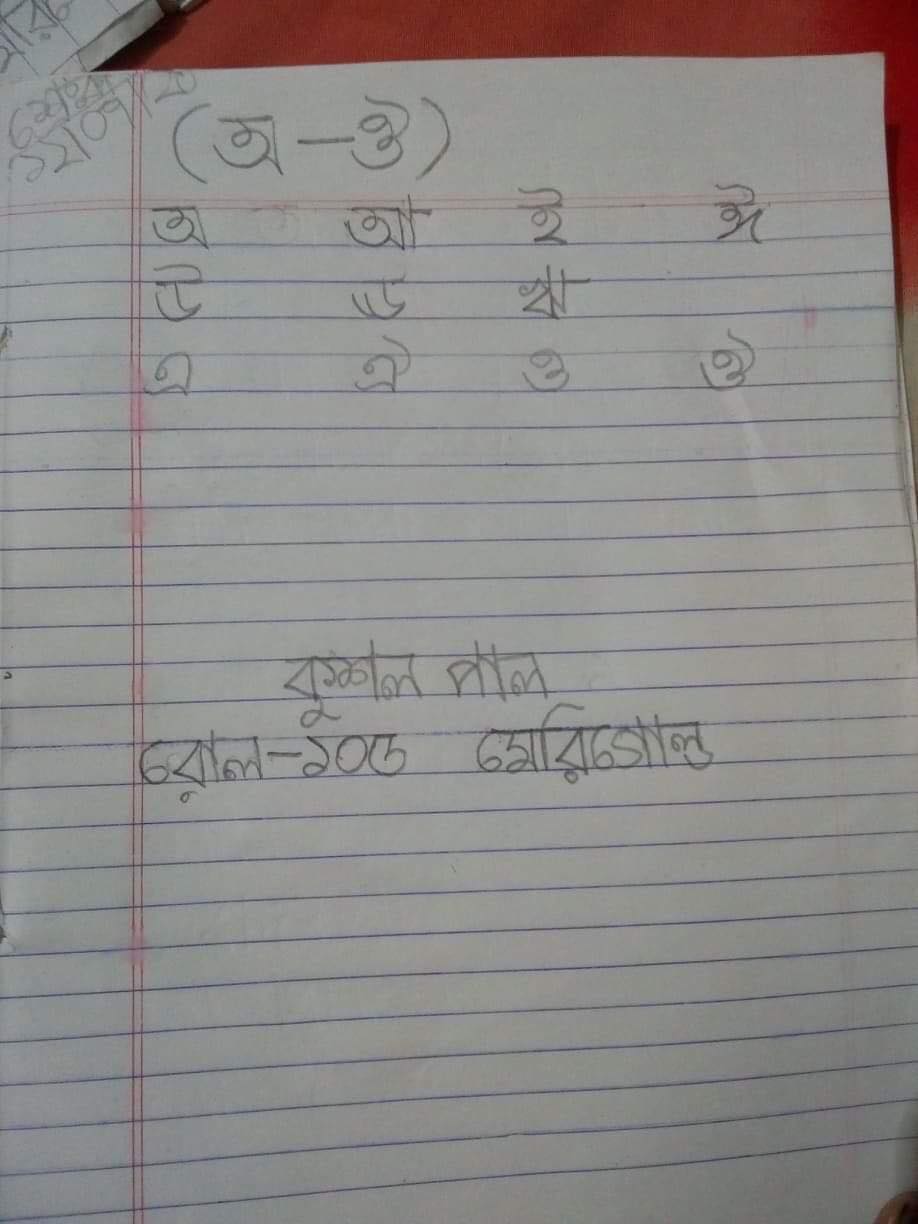 (অ-ঔ)
অ আ ই ঈ
উ ঊ ঋ
এ ঐ ও ঔ
কুশল পাল
রোল-১০৬ মেরিগোল্ড